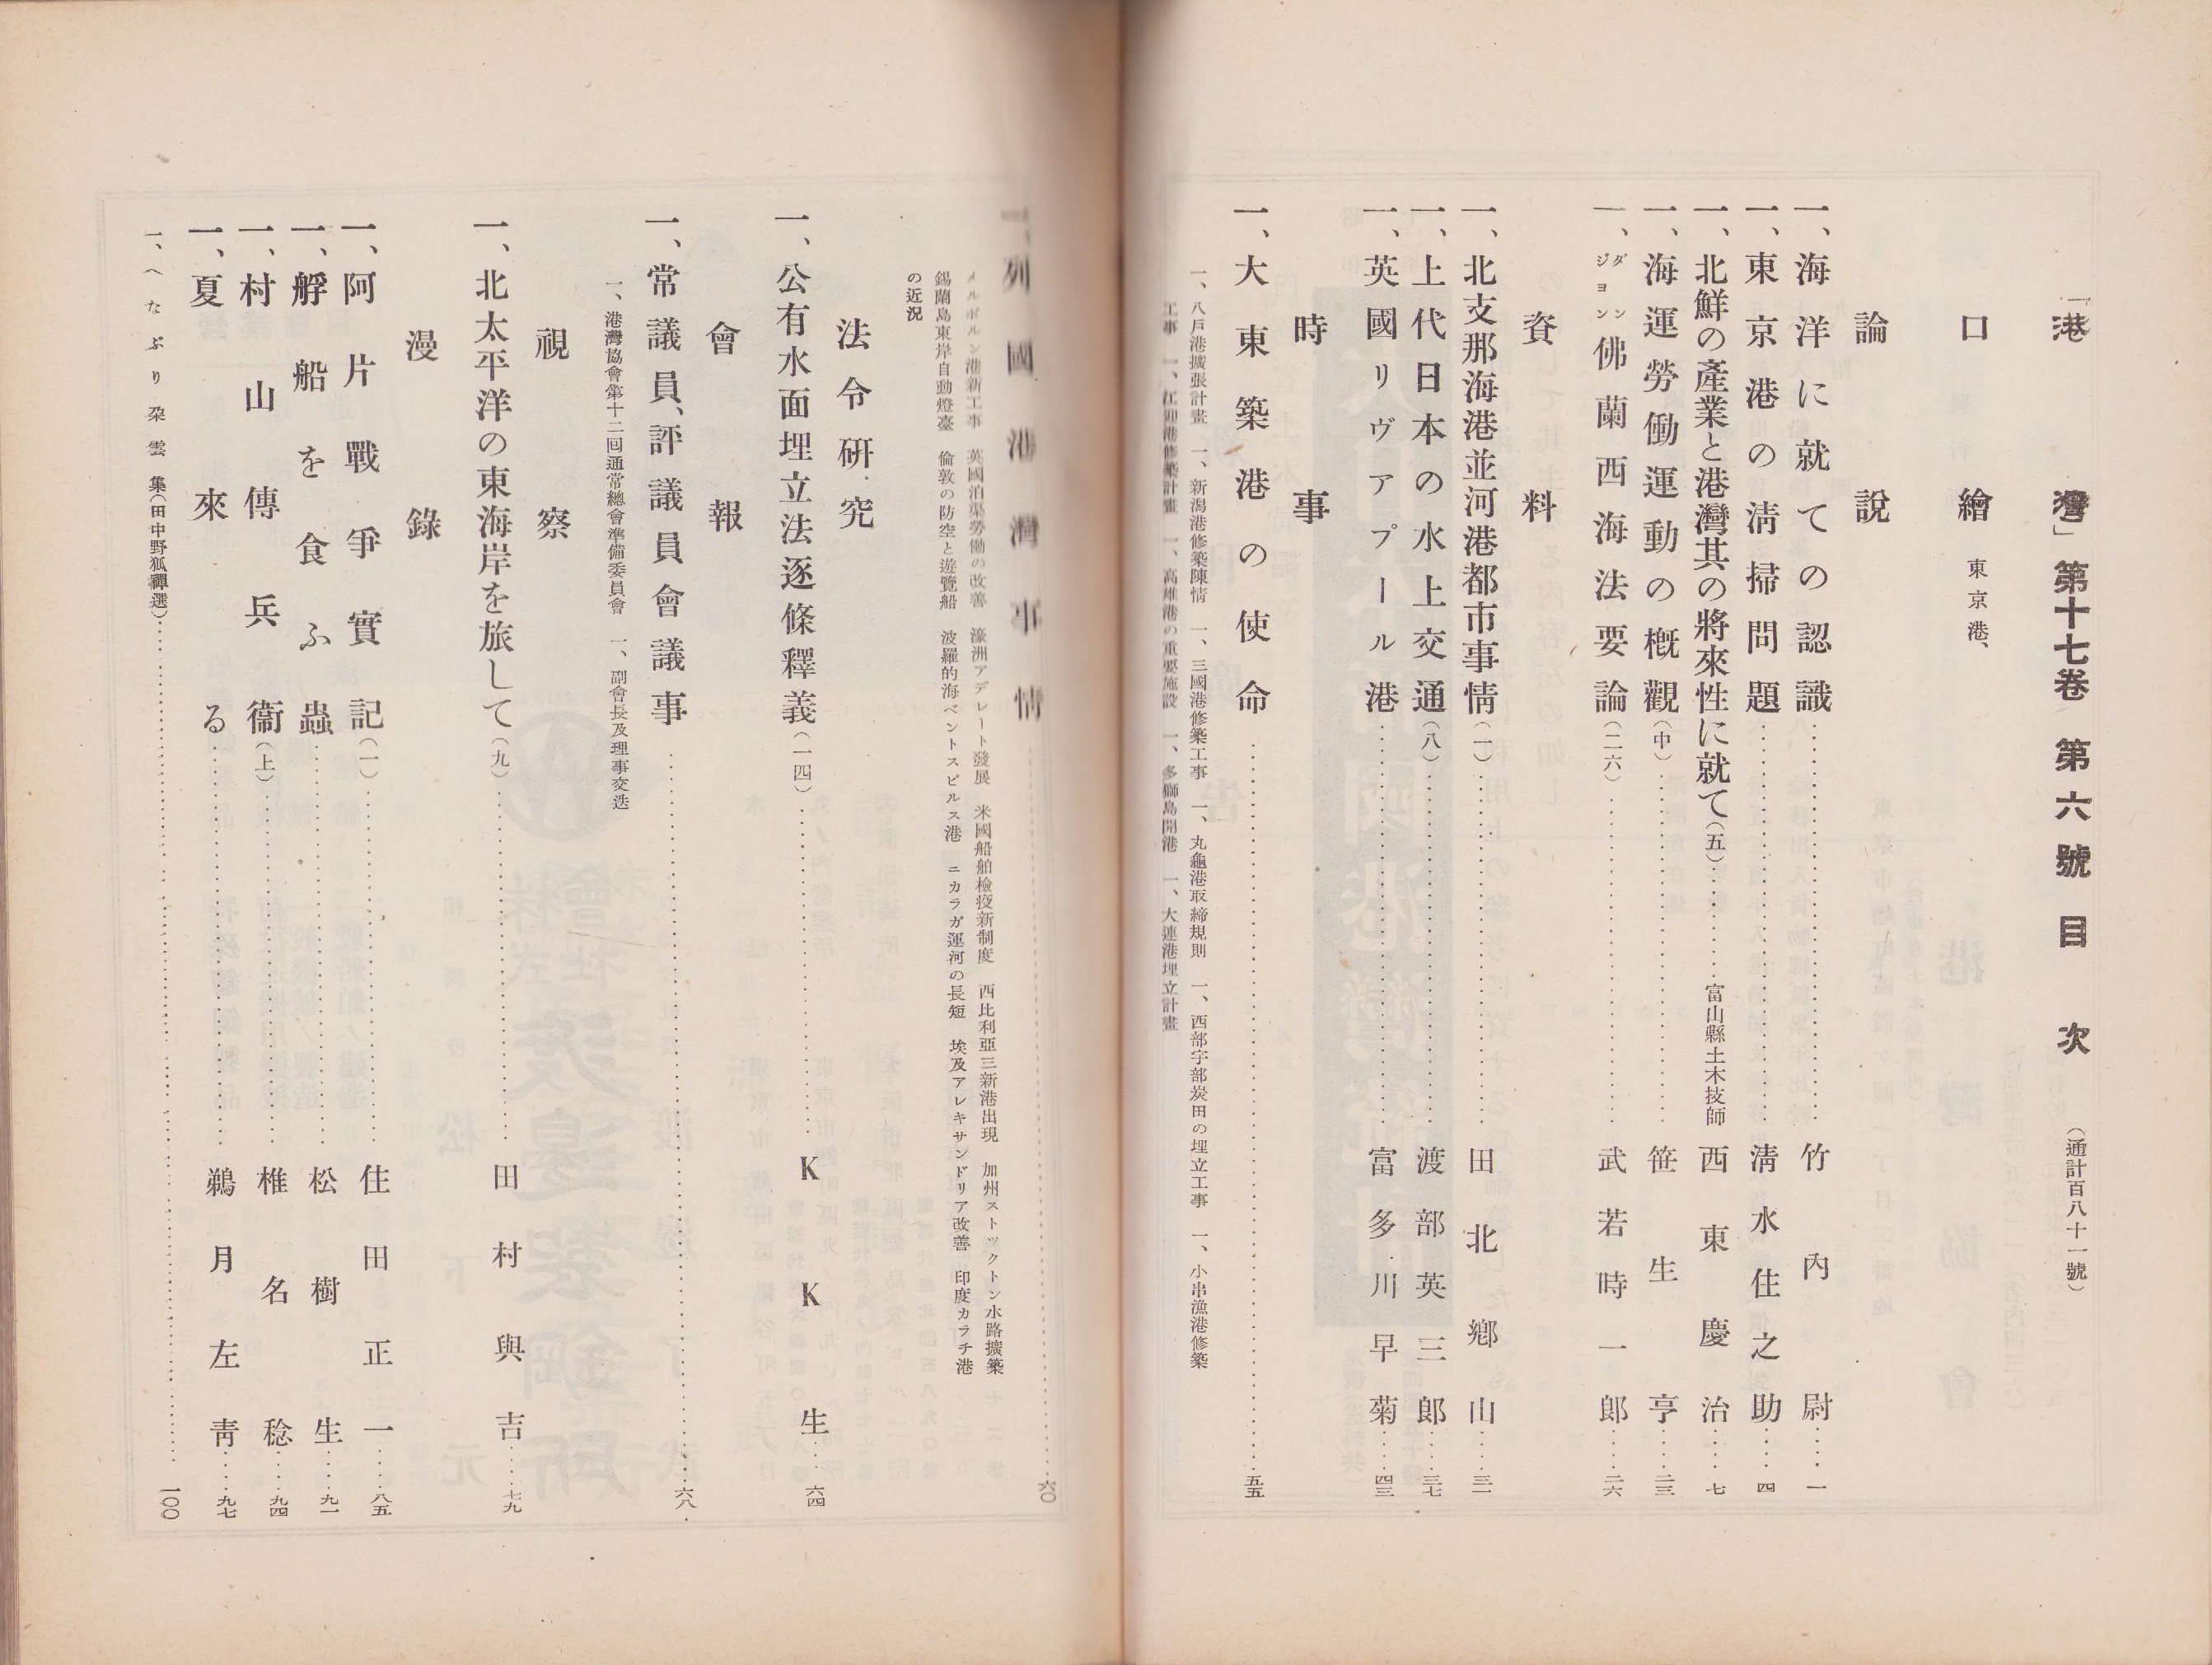 「港灣」第十七卷 第六號 目次 (通計百八十一號)
口繪 東京港、
論說
一、海洋に就ての認識………竹內尉……一
一、東京港の淸掃問題………淸水住之助……四
一、北鮮の產業と港灣其の將來性に就て(五)………富山縣土木技師 西東慶治……七
一、海運勞働運動の槪觀(中)………笹生亨……二三
一、ダンジョン佛蘭西海法要論(二六)………武若時一郞……二六
資料
一、北支那海港並河港都市事情(一)………田北鄕山……三一
一、上代日本の水上交通(八)………渡部英三郞……三七
一、英國リヴアプール港………富多川早菊……四三
時事
一、大東築港の使命………五五
一、八戶港擴張計畫 一、新潟港修築陳情 一、三國港修築工事 一、丸龜港取締規則 一、西部宇部炭田の埋立工事 一、小串漁港修築
工事 一、江迎港修築計畫 一、高雄港の重要施設 一、多獅島開港 一、大連港埋立計畫
一、列國港灣事情………六〇
メルボルン港新工事 英國泊渠勞働の改善 濠洲アデレート發展 米國船舶檢疫新制度 西比利亞三新港出現 加州ストックトン水路擴築
錫蘭島東岸自動燈臺 倫敦の防空と遊覽船 波羅的海ベントスピルス港 ニカラガ運河の長短 埃及アレキサンドリア改善 印度カラチ港
の近況
法令硏究
一、公有水面埋立法逐條釋義(一四)………KK生……六四
會報
一、常議員、評議員會議事………六八
一、港灣協會第十二回通常總會準備委員會 一、副會長及理事交迭
視察
一、北太平洋の東海岸を旅して(九)………田村與吉……七九
漫錄
一、阿片戰爭實記(一)………住田正一……八五
一、艀船を食ふ蟲………松樹生……九一
一、村山傳兵衞(上)………椎名稔……九四
一、夏來る………鵜月左靑……九七
一、へなぶり朶雲集(田中野狐禪選)………一〇〇